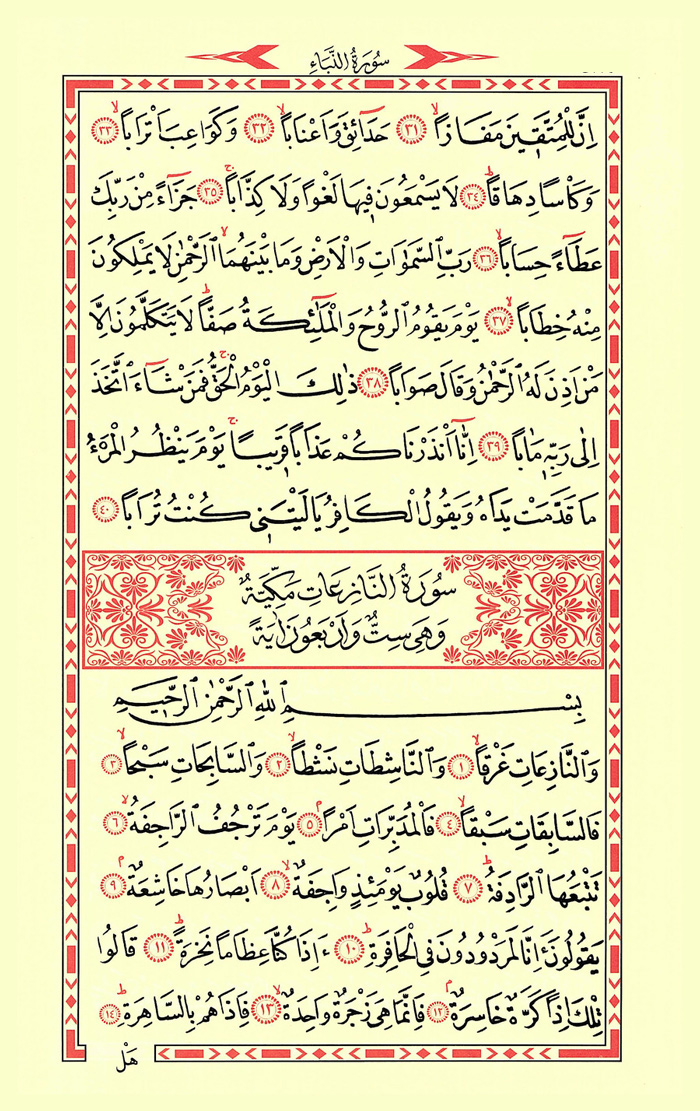 سُورَةُ النَّبَاءِ
اِنَّ لِلْمُتَّقٖينَ مَفَازاًۙ ﴿٣١﴾ حَدَٓائِقَ وَاَعْنَاباًۙ ﴿٣٢﴾ وَكَوَاعِبَ اَتْرَاباًۙ ﴿٣٣﴾
وَكَأْساً دِهَاقاًؕ ﴿٣٤﴾ لَا يَسْمَعُونَ فٖيهَا لَغْواً وَلَا كِذَّاباًۚ ﴿٣٥﴾ جَزَٓاءً مِنْ رَبِّكَ
عَطَٓاءً حِسَاباًۙ ﴿٣٦﴾ رَبِّ السَّمٰوَاتِ وَالْاَرْضِ وَمَا بَيْنَهُمَا الرَّحْمٰنِ لَا يَمْلِكُونَ
مِنْهُ خِطَاباًۙ ﴿٣٧﴾ يَوْمَ يَقُومُ الرُّوحُ وَالْمَلٰٓئِكَةُ صَفاًّؕ لَا يَتَكَلَّمُونَ اِلَّا
مَنْ اَذِنَ لَهُ الرَّحْمٰنُ وَقَالَ صَوَاباً ﴿٣٨﴾ ذٰلِكَ الْيَوْمُ الْحَقُّۚ فَمَنْ شَٓاءَ اتَّخَذَ
اِلٰى رَبِّهٖ مَاٰباً ﴿٣٩﴾ اِنَّٓا اَنْذَرْنَاكُمْ عَذَاباً قَرٖيباًۚ يَوْمَ يَنْظُرُ الْمَرْءُ
مَا قَدَّمَتْ يَدَاهُ وَيَقُولُ الْكَافِرُ يَا لَيْتَنٖى كُنْتُ تُرَاباً ﴿٤٠﴾
سُورَةُ النَّازِعَاتِ مَكِّيَّةٌ
وَهِىَ سِتٌّ وَاَرْبَعُونَ اٰيَةً
بِسْمِ اللّٰهِ الرَّحْمٰنِ الرَّحٖيمِ
وَالنَّازِعَاتِ غَرْقاًۙ ﴿١﴾ وَالنَّاشِطَاتِ نَشْطاًۙ ﴿٢﴾ وَالسَّابِحَاتِ سَبْحاًۙ ﴿٣﴾
فَالسَّابِقَاتِ سَبْقاًۙ ﴿٤﴾ فَالْمُدَبِّرَاتِ اَمْراًۢ ﴿٥﴾ يَوْمَ تَرْجُفُ الرَّاجِفَةُۙ ﴿٦﴾
تَتْبَعُهَا الرَّادِفَةُؕ ﴿٧﴾ قُلُوبٌ يَوْمَئِذٍ وَاجِفَةٌۙ ﴿٨﴾ اَبْصَارُهَا خَاشِعَةٌۢ ﴿٩﴾
يَقُولُونَ ءَاِنَّا لَمَرْدُودُونَ فِى الْحَافِرَةِؕ ﴿١٠﴾ ءَاِذَا كُنَّا عِظَاماً نَخِرَةًؕ ﴿١١﴾ قَالُوا
تِلْكَ اِذاً كَرَّةٌ خَاسِرَةٌۢ ﴿١٢﴾ فَاِنَّمَا هِىَ زَجْرَةٌ وَاحِدَةٌۙ ﴿١٣﴾ فَاِذَا هُمْ بِالسَّاهِرَةِؕ ﴿١٤﴾
هَلْ